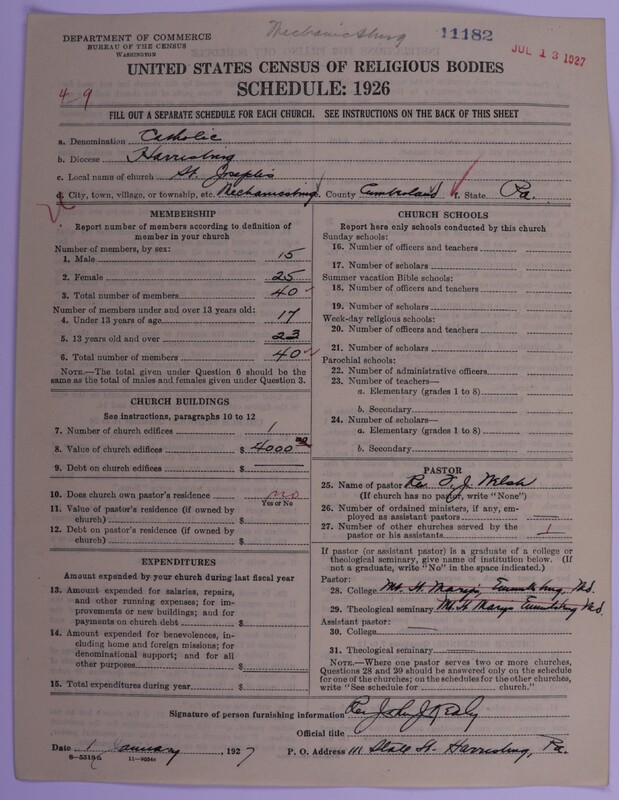 DEPARTMENT OF COMMERCE
BUREAU OF THE CENSUS
WASHINGTON
Mechanicsburg
11182
JUL 13 1927
UNITED STATES CENSUS OF RELIGIOUS BODIES
SCHEDULE: 1926
4-9
FILL OUT A SEPARATE SCHEDULE FOR EACH CHURCH. SEE INSTRUCTIONS ON THE BACK OF THIS SHEET
a. Denomination Catholic
b. Diocese Harrisburg
c. Local name of church St. Joseph's
d. City, town, village, or township, etc. Mechanicsburg e. County Cumberland f. State Pa.
MEMBERSHIP
Report number of members according to definition of
member in your church
Number of members, by sex:
1. Male 15
2. Female 25
3. Total number of members 40
Number of members under and over 13 years old:
4. Under 13 years of age 17
5. 13 years old and over 23
6. Total number of members 40
NOTE.—The total given under Question 6 should be
same as the total of males and females given under Question 3.
CHURCH BUILDINGS
See instructions, paragraphs 10 to 12
7. Number of church edifices 1
8. Value of church edifices $ 4000 00
9. Debt on church edifices $
10. Does church own pastor's residence no
Yes or No
11. Value of pastor's residence (if owned by
church) $
12. Debt on pastor's residence (if owned by
church) $
EXPENDITURES
Amount expended by your church during last fiscal year
13. Amount expended for salaries, repairs,
and other running expenses; for im-
provements or new buildings; and for
payments on church debt $
14. Amount expended for benevolences, in-
cluding home and foreign missions; for
denominational support; and for all
other purposes $
15. Total expenditures during year $
CHURCH SCHOOLS
Report here only schools conducted by this church
Sunday schools:
16. Number of officers and teachers
17. Number of scholars
Summer vacation Bible schools:
18. Number of officers and teachers
19. Number of scholars
Week-day religious schools:
20. Number of officers and teachers
21. Number of scholars
Parochial schools:
22. Number of administrative officers
23. Number of teachers—
a. Elementary (grades 1 to 8)
b. Secondary
24. Number of scholars—
a. Elementary (grades 1 to 8)
b. Secondary
PASTOR
25. Name of pastor Rev. T. J. Welsh
(If church has no pastor, write "None")
26. Number of ordained ministers, if any, em-
ployed as assistant pastors
27. Number of other churches served by the
pastor or his assistants 1
If pastor (or assistant pastor) is a graduate of a college or
theological seminary, give name of institution below. (If
not a graduate, write "No" in the space indicated.)
Pastor:
28. College Mt. St. Marys, Emmitsburg, Md.
29. Theological seminary Mt. St. Marys Emmitsburg Md.
Assistant pastor:
30. College
31. Theological seminary
NOTE.—Where one pastor serves two or more churches,
Questions 28 and 29 should be answered only on the schedule
for one of the churches; on the schedules for the other churches,
write "See schedule for church."
Signature of person furnishing information Rev John J Kealy
Official title
Date 1 January, 1927 P. O. Address 111 State St. Harrisburg, Pa.